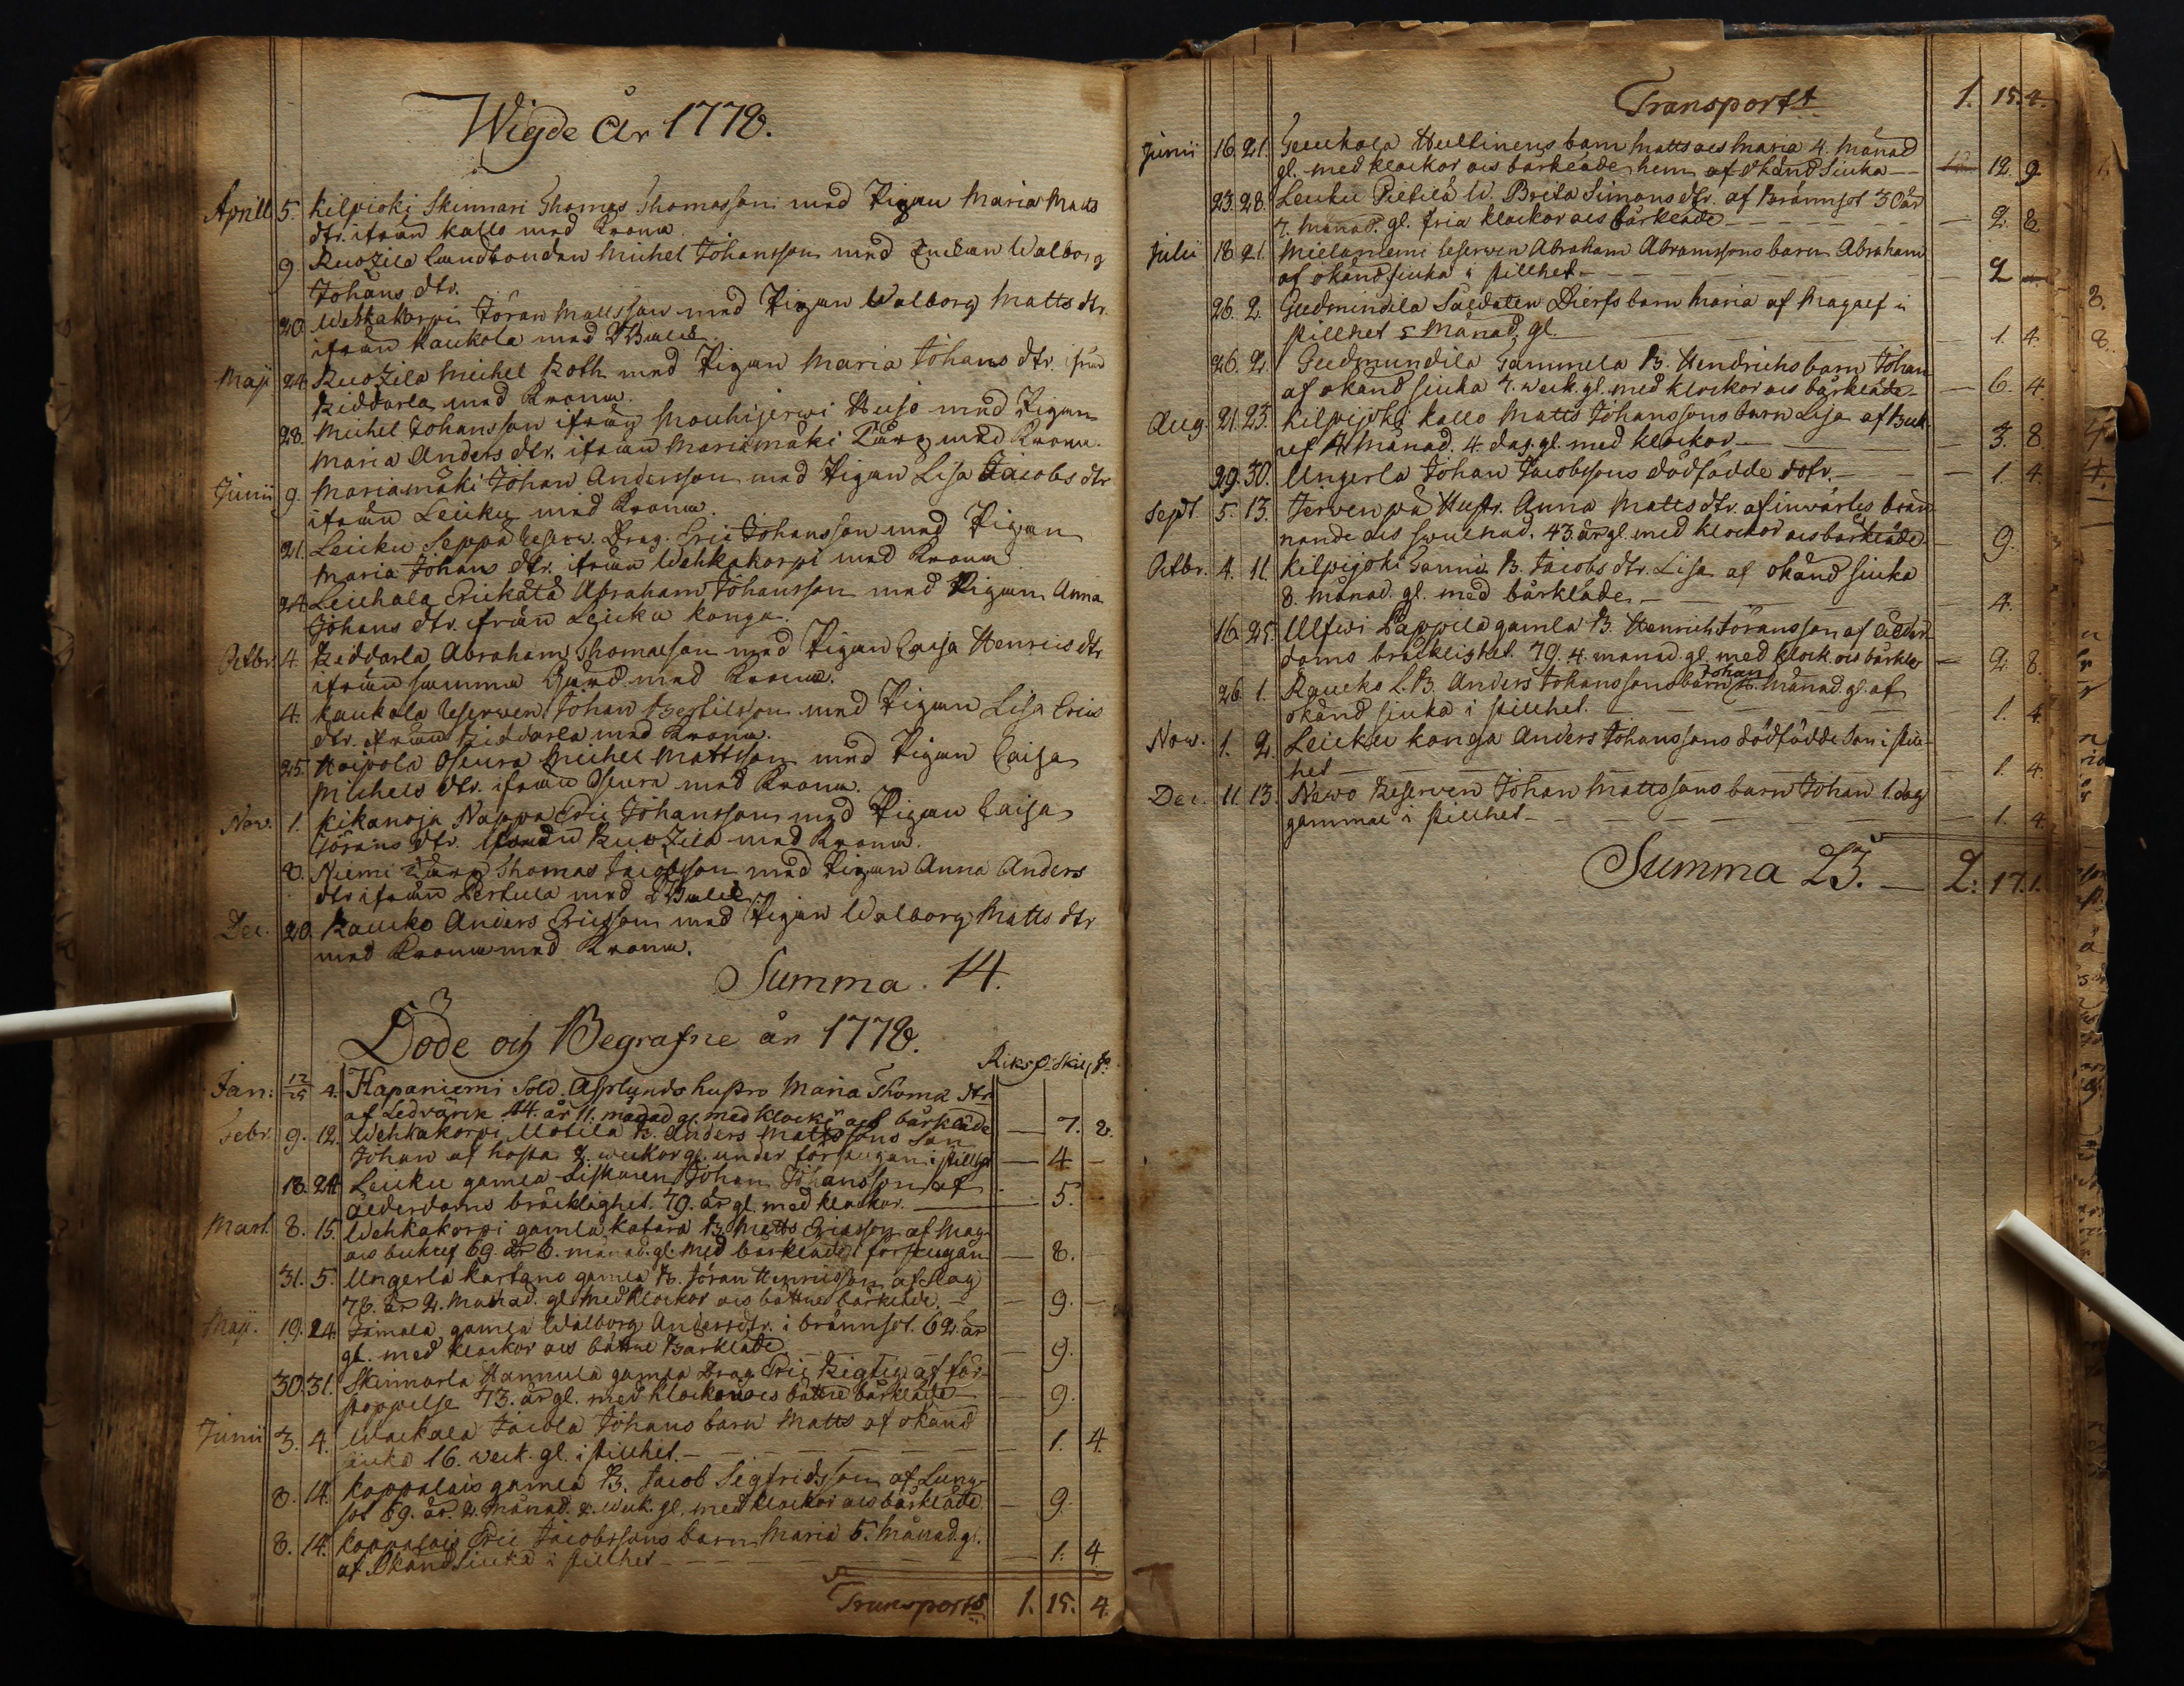 Wigde År 1778.
Aprill 5. Kilpioki Skinnari Thomas Thomasson med Pigan Maria Matts
dtr. ifrån Kallo med Krona.
9 Ruozila Landbonden Michel Johansson med Enckan Walborg
Johans dtr.
20. Wehkakorpi Jöran Mattsson med Pigan Walborg Matts dtr.
ifrån Kaukola med
Maji 24. Ruozila Michel Roth med Pigan Maria Johans dtr. ifrån
Riddarla med Krona.
28. Michel Johansson ifrån Mouhijerwi Huso med Pigan
Maria Anders dtr. ifrån Mariamäki Lärg med Krona.
Junii 9. Mariamäki Johan Andersson med Pigan Lisa Jacobs dtr
ifrån Leuku med Krona.
21. Leuku Seppä Reserv. Drag. Eric Johansson med Pigan
Maria Johans dtr. ifrån Wehkakorpi med Krona
24. Leuhala Erickälä Abraham Johansson med Pigan Anna
Johans dtr. ifrån Leuku Konga.
Octbr. 4. Riddarla Abraham Thomasson med Pigan Caisa Henrics dtr
ifrån samma Gård med Krona.
4. Kaukola Reserven Johan Bertilsson med Pigan Lisa Erics
dtr. ifrån Riddarla med Krona.
25. Haipola Osmra Michel Mattsson med Pigan Caisa
Michels dtr. ifrån Osmra med Krona.
Nov. 1. Kikanoja Nappa Eric Johansson med Pigan Caisa
Jörans dtr. ifrån Ruozila med Krona.
8. Niemi Thomas Jacobsson med Pigan Anna Anders
dtr ifrån Pertula med
Dec. 20. Raucko Anders Ericsson med Pigan Walborg Matts dtr
med Krona med Krona.
Summa. 14.
Döde och Begrafne år 1778.
Riksd. Skil.
Jan: 12/15 4. Hapaniemi Sold. Asplunds hustro Maria Thomæ dtr
af Ledvärck 44. år 11. månad gl. med klockor och bårkläde — 7. 2.
Febr. 9. 12. Wehkakorpi Motila B. Anders Mattssons Son
Johan af hosta 8. weckor gl. under försugan i stillhet — 4 —
18. 24 Leuku gamla Siskaren Johan Johansson af
ålderdoms bräcklighet. 79. år gl. med klockor. — 5.
Mart. 8. 15. Wehkakorpi gamla Katara B. Matts Ericsson af Mag-
och bukref 69. år 6. månad. gl. med bårkläde i förstugan — 8. —
31. 5. Ungerla Kartano gamla B. Jöran Henricsson af Slag
78. år 2. månad. gl. med klockor och bättre bårkläde. — 9. —
Maji. 19. 24. Jämala gamla Walborg Anders dtr. i brännsot. 62. år
gl. med klockor och bättre Barkläde — 9.
30. 31. Skinnarla Hannula gamla Drag. Eric Rigtig af för-
stoppelse 73. år gl. med klockor och bättre bårkläde — 9.
Junii 3. 4. Wackala Jacola Johans barn Matts af okänd
siuka 16. weck. gl. i stillhet. — 1. 4.
8. 14. Koppalais gamla B. Jacob Sigfridsson af Lung-
sot 69. år. 2. månad. 2. weck. gl. med klockor och bårkläde — 9.
8. 14. Koppalais Eric Jacobssons barn Maria 5. månad. gl.
af okänd siuka i stillhet — 1. 4
Transport 1. 15. 4.
Transport 1. 15. 4.
Junii 16. 21. Hultinens barn Matts och Maria 4. månad
gl. med klockor och bårkläde hem af okänd siuka — 12. 9.
23. 28. Leuku Pietilä W. Brita Simons dtr. af Brännsot 30 år
7. månad. gl. fria klockor och bårkläde — 2. 8.
Julii 18. 21. Mielaniemi Reserven Abraham Abramssons barn Abraham
af okänd siuka i stillhet — 2 —
26. 2. Gudmundila Soldaten Dierfs barn Maria af Magref i
stillhet 5 månad. gl. — 1. 4.
26. 2. Gudmundila Gammela B. Hendrichs barn Johan
af okänd siuka 7. weck. gl. med klockor och bårkläde — 6. 4
Aug. 21. 23. Kilpijoki Kallo Matts Johanssons barn Lisa af Buk-
ref 4 månad. 4. dag. gl. med klockor — 3. 8
29. 30. Ungerla Johan Jacobssons dödfödde dotr. — 1. 4.
Sept. 5. 13. Jerwenpä Hustr. Anna Matts dtr. af inwärtes brän-
nande och swulnad. 43. år gl. med klockor och bårkläde — 9.
Octbr. 4. 11. Kilpijoki Sonni B. Jacobs dtr. Lisa af okänd siuka
8. månad. gl. med bårkläde — 4.
16. 25. Ulfwi Pappila gamla B. Henrich Jöransson af ålder-
doms bräcklighet. 79. 4. månad gl. med klock. och bårkläde — 2. 8.
26. 1. Raucko L. B. Anders Johanssons barn Johan månad. gl. af
okänd siuka i stillhet. — 1. 4.
Nov. 1. 2. Leuku Konga Anders Johanssons dödfödde Son i still-
het — 1. 4.
Dec. 11. 13. Nowo Reserven Johan Mattssons barn Johan 1. dag
gammal i stillhet — 1. 4.
Summa 23. — 2: 17. 1.